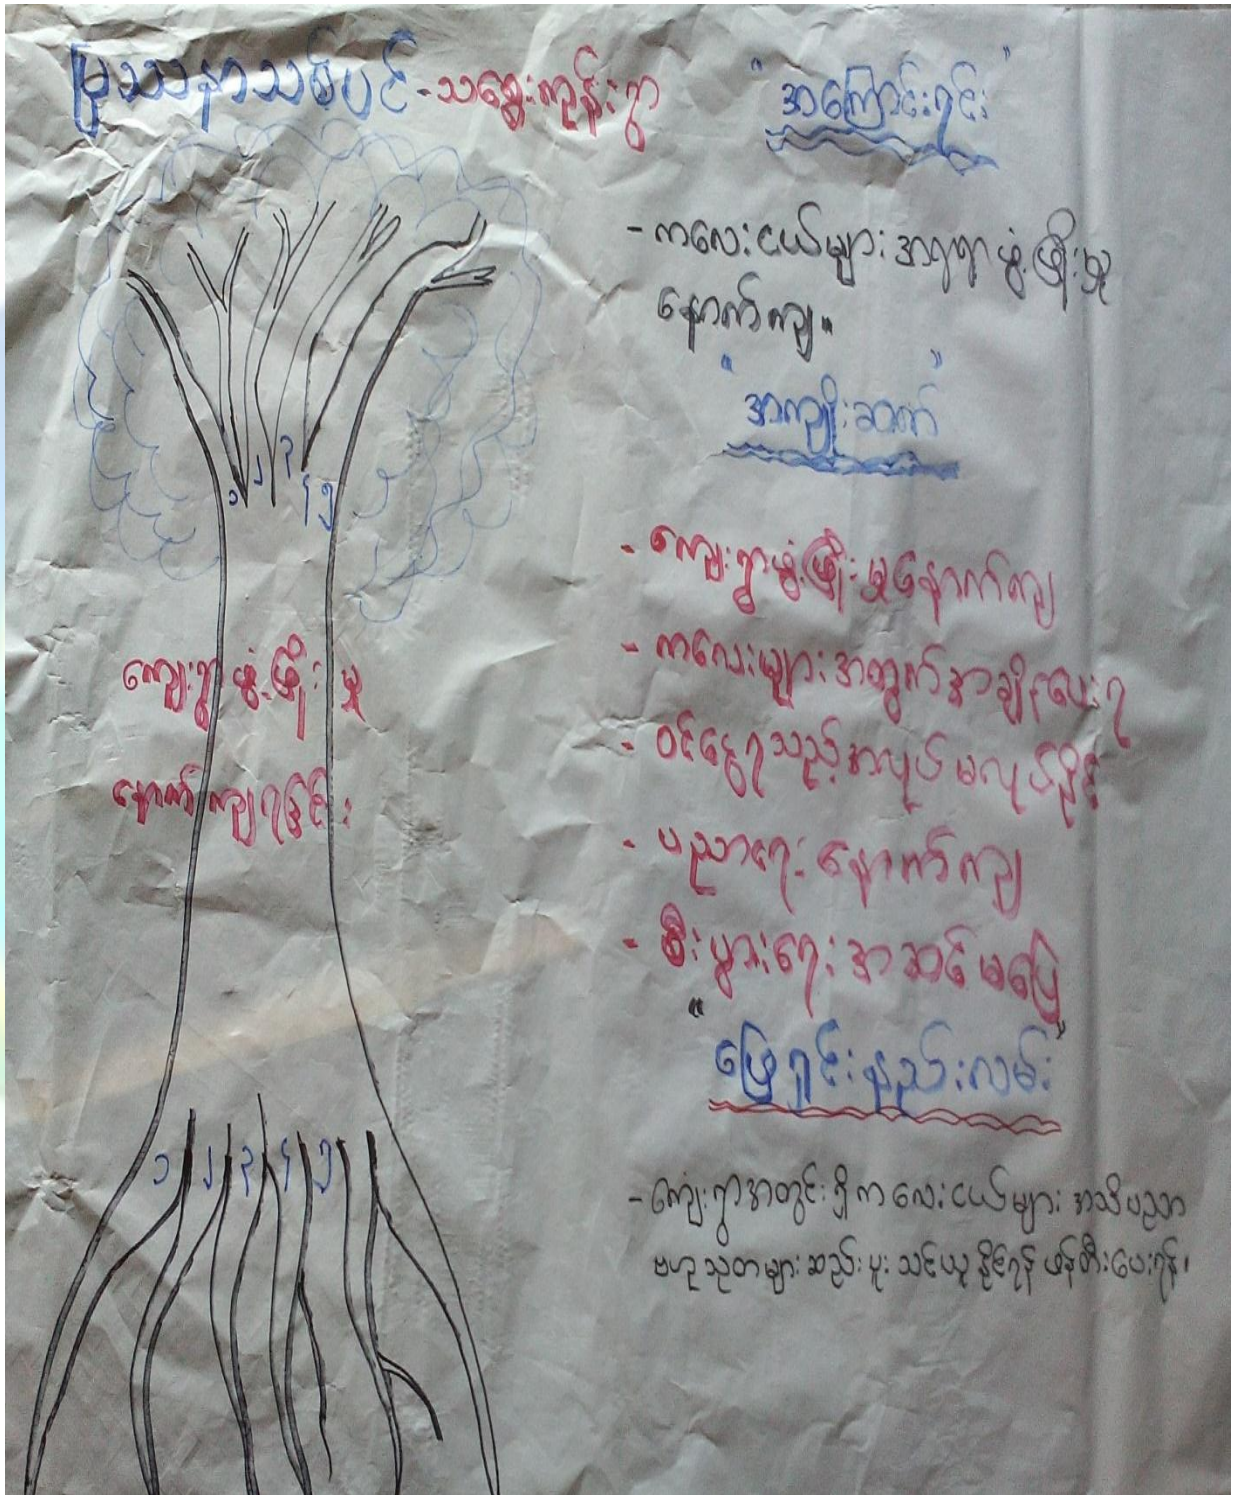 ပြဿနာသစ်ပင်-သရွေးကုန်းရွာ
"အကြောင်းရင်း"
- ကလေးငယ်များ အရာရာ ဖွံ့ဖြိုးမှု
နောက်ကျ။
"အကျိုးဆက်"
၁ ၂ ၃ ၄ ၅
- ကျေးရွာဖွံ့ဖြိုးမှုနောက်ကျ
- ကလေးများအတွက်အချိန်ပေးရ
- ဝင်ငွေရသည့်အလုပ်မလုပ်နိုင်
- ပညာရေး နောက်ကျ
- စီးပွားရေး အဆင်မပြေ
ကျေးရွာ ဖွံ့ဖြိုးမှု
နောက်ကျရခြင်း
"ဖြေရှင်းနည်းလမ်း"
၁ ၂ ၃ ၄ ၅
- ကျေးရွာအတွင်းရှိ ကလေးငယ်များ အသိပညာ
ဗဟုသုတများ ဆည်းပူး သင်ယူနိုင်ရန် ဖန်တီးပေးရန်၊